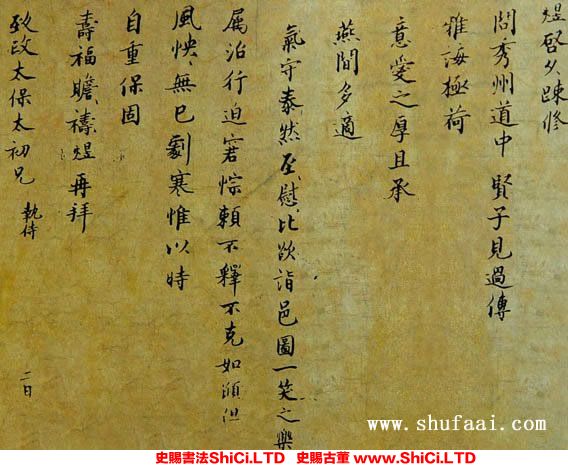 煜啓久踈修
問秀州道中賢子見過傳
雅誨極荷
意愛之厚且承
燕閒多適
氣守泰然至慰比欲詣邑圖一笑之樂
属治行迫窘悰頼不釋不克如願但
風怏無已劇寒惟以時
自重保固
壽福瞻禱煜再拜
致政太保太初兄執侍
二日
www.shufaai.com
史賜書法ShiCi.LTD 史賜古董 www.ShiCi.LTD